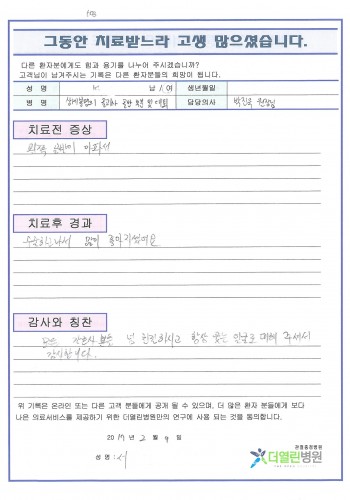 그동안 치료받느라 고생 많으셨습니다.
다른 환자분에게도 힘과 용기를 나누어 주시겠습니까?
고객님이 남겨주시는 기록은 다른 환자분들의 희망이 됩니다.
성 명 남 / 여 생년월일
병 명 담당의사 박진욱 원장님
치료전 증상
왼쪽 골반이 아파서
치료후 경과
수술하고나서 많이 좋아지셨어요
감사와 칭찬
모든 간호사 분들 넘 친절하시고 항상 웃는 얼굴로 대해 주셔서
감사합니다.
위 기록은 온라인 또는 다른 고객 분들에게 공개 될 수 있으며, 더 많은 환자 분들에게 보다
나은 의료서비스를 제공하기 위한 더열린병원만의 연구에 사용 되는 것을 동의합니다.
2017 년 2 월 9 일
성 명 : 서
관절중점병원
더열린병원